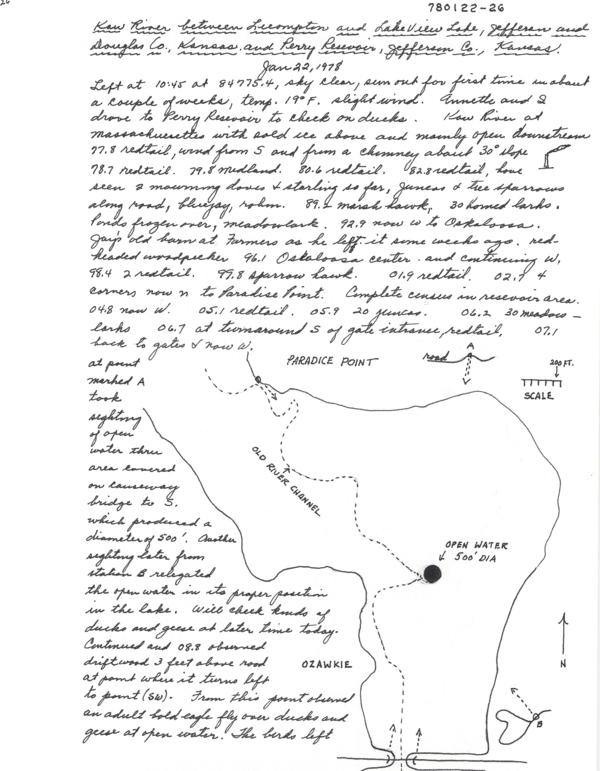 780122-26
26
Kaw River between Lecompton and LakeView Lake, Jefferson and
Douglas Co., Kansas, and Perry Resevoir, Jefferson Co., Kansas.
Jan 22, 1978
Left at 10:45 at 84775.4, sky clear, sun out for first time in about
a couple of weeks, temp. 19°F. slight wind. Annette and I
drove to Perry Resevoir to check on ducks. Kaw River at
Massachusettes with solid ice above and mainly open downstream
77.8 redtail, wind from S and from a chimney about 30° slope
78.7 redtail. 79.8 medland. 80.6 redtail. 82.8 redtail, have
seen 2 mourning doves & starling so far, juncos & tree sparrows
along road, bluejay, robin. 89.2 marsh hawk, 30 horned larks.
Ponds frozen over, meadowlark. 92.9 now W to Oskaloosa.
Jay's old barn at Farmers as he left it some weeks ago. red-
headed woodpecker 96.1 Oskaloosa center and continuing W,
98.4 2 redtail. 99.8 sparrow hawk. 01.9 redtail. 02.7 4
corners now n to Paradise Point. Complete census in resevoir area.
04.8 now W. 05.1 redtail. 05.9 20 juncos. 06.2 30 meadow-
larks 06.7 at turnaround S of gate intrance, redtail, 07.1
back to gates & now W.
at point
marked A
took
sighting
of open
water thru
area covered
on causeway
bridge to S.
which produced a
diameter of 500'. Another
sighting later from
station B relegated
the open water in its proper position
in the lake. Will check kinds of
ducks and geese at later time today.
Continued and 08.8 observed
driftwood 3 feet above road
at point where it turns left
to point (SW). From this point observed
an adult bald eagle fly over ducks and
geese at open water. The birds left
PARADICE POINT
road
A
200 FT.
SCALE
OLD RIVER CHANNEL
OPEN WATER
500' DIA
OZAWKIE
N
B